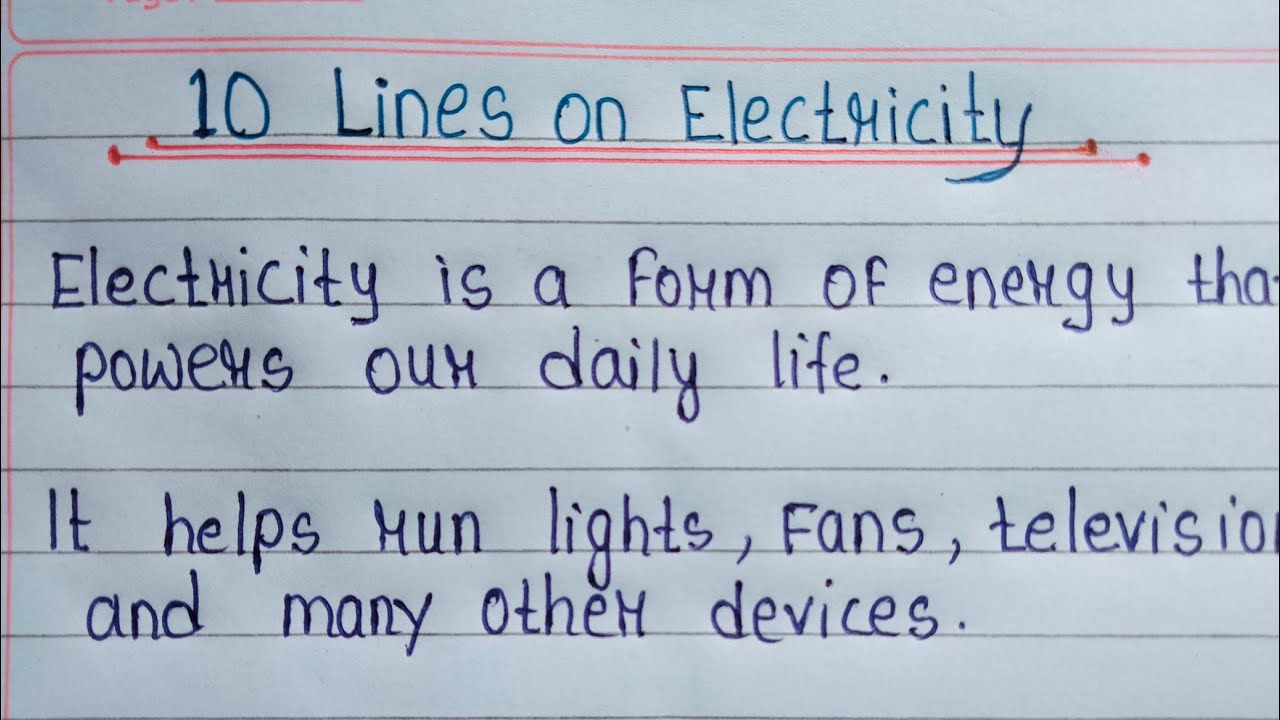 10 Lines on Electricity
Electricity is a form of energy tha
powers our daily life.
It helps run lights, fans, televisio
and many other devices.